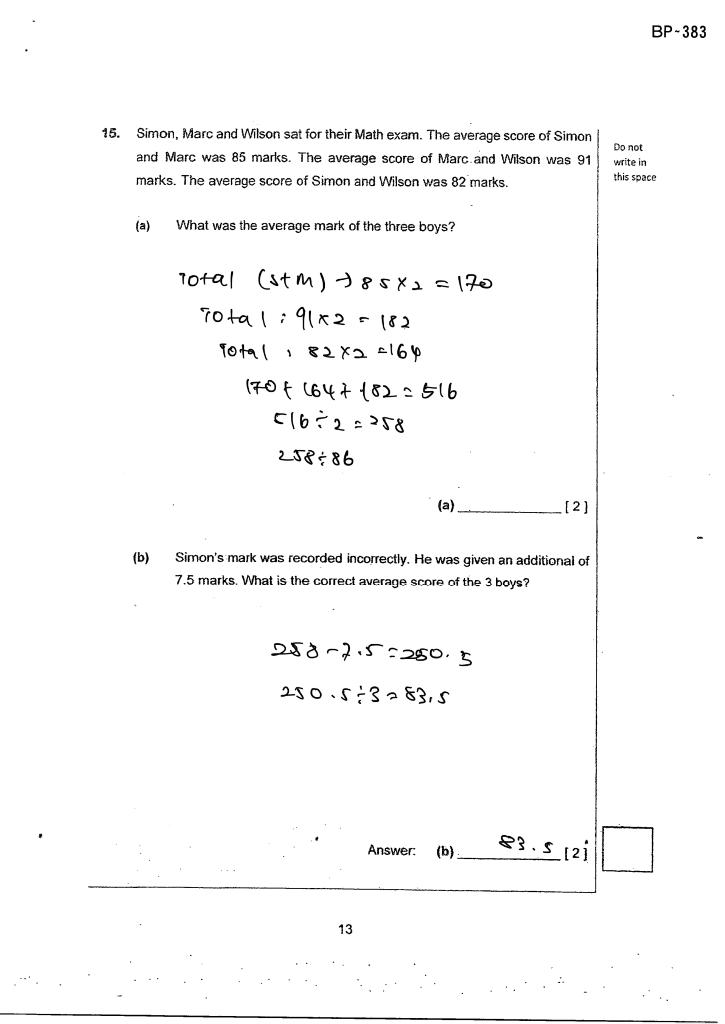 BP-383
15. Simon, Marc and Wilson sat for their Math exam. The average score of Simon
and Marc was 85 marks. The average score of Marc and Wilson was 91
marks. The average score of Simon and Wilson was 82 marks.
Do not
write in
this space
(a) What was the average mark of the three boys?
Total (S+M) → 85 x 2 = 170
Total : 91 x 2 = 182
Total : 82 x 2 = 164
170 + 164 + 182 = 516
516 ÷ 2 = 258
258 ÷ 86
(a) ____________ [2]
(b) Simon's mark was recorded incorrectly. He was given an additional of
7.5 marks. What is the correct average score of the 3 boys?
258 - 7.5 = 250.5
250.5 ÷ 3 = 83.5
Answer: (b) 83.5 [2]
13